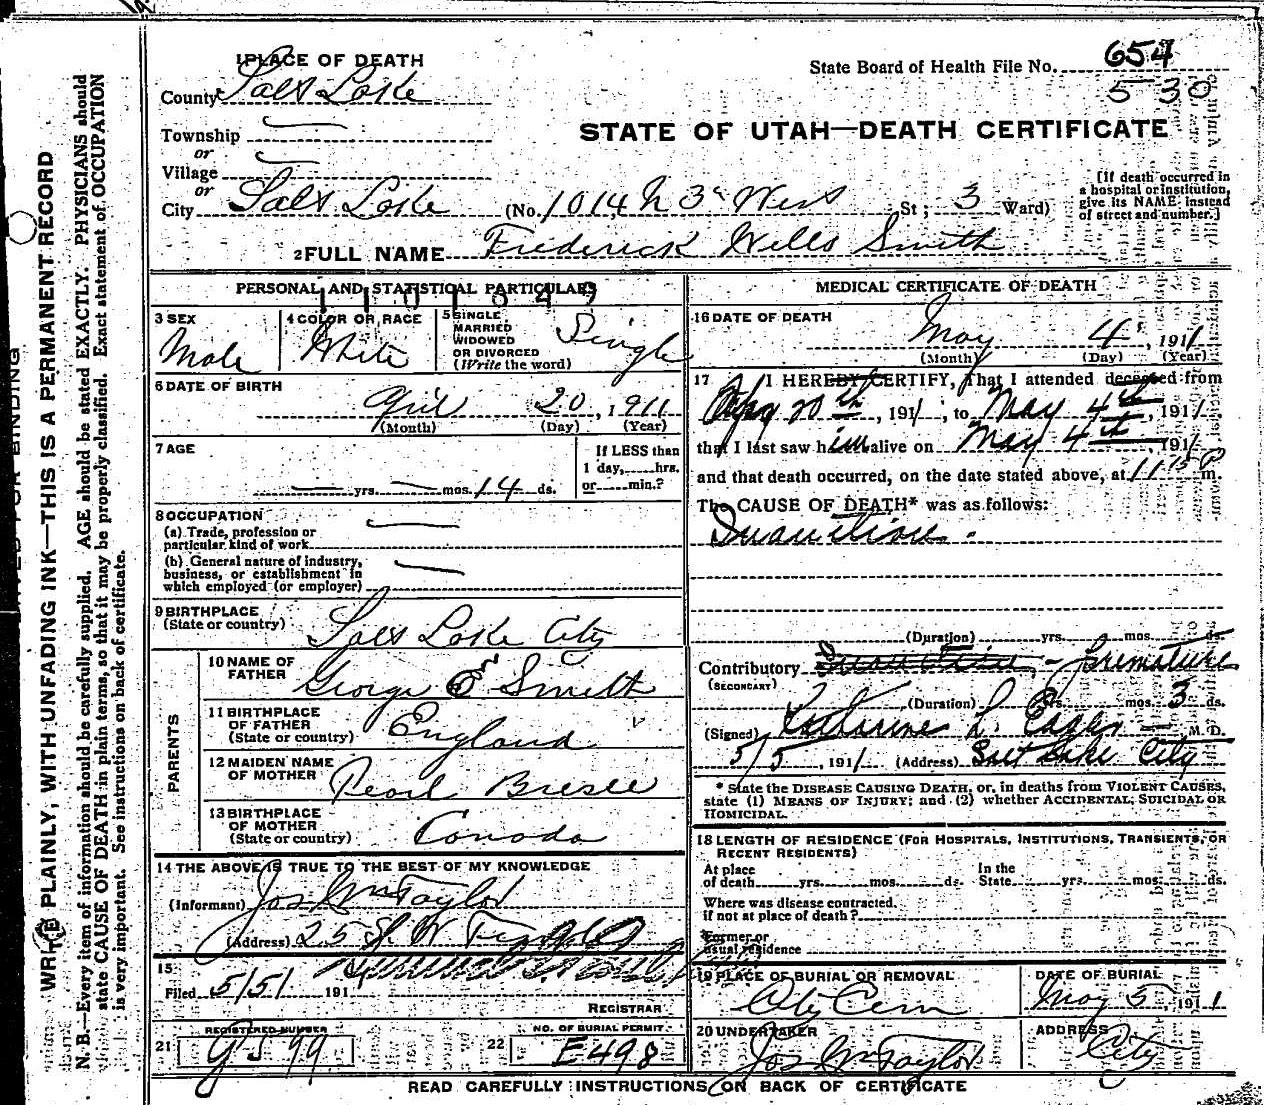 1 PLACE OF DEATH
County Salt Lake
Township
or
Village
or
City Salt Lake (No. 1014 N 3rd West St; 3 Ward)
State Board of Health File No. 654
530
STATE OF UTAH—DEATH CERTIFICATE
[If death occurred in
a hospital or institution,
give its NAME instead
of street and number.]
2 FULL NAME Frederick Wells Smith
PERSONAL AND STATISTICAL PARTICULARS
3 SEX
Male
4 COLOR OR RACE
White
5 SINGLE
MARRIED
WIDOWED
OR DIVORCED
(Write the word)
Single
6 DATE OF BIRTH
April 20, 1911
(Month) (Day) (Year)
7 AGE
yrs. mos. 14 ds.
If LESS than
1 day, hrs.
or min.?
8 OCCUPATION
(a) Trade, profession or
particular kind of work
(b) General nature of industry,
business, or establishment in
which employed (or employer)
9 BIRTHPLACE
(State or country)
Salt Lake City
PARENTS
10 NAME OF
FATHER
George E Smith
11 BIRTHPLACE
OF FATHER
(State or country)
England
12 MAIDEN NAME
OF MOTHER
Pearl
13 BIRTHPLACE
OF MOTHER
(State or country)
Canada
14 THE ABOVE IS TRUE TO THE BEST OF MY KNOWLEDGE
(Informant) Jos Wm Taylor
(Address) 25 S. W Temple
15
Filed 5/5/ 191
REGISTRAR
21 REGISTERED NUMBER
22 NO. OF BURIAL PERMIT
E498
MEDICAL CERTIFICATE OF DEATH
16 DATE OF DEATH
May 4, 1911
(Month) (Day) (Year)
17 I HEREBY CERTIFY, That I attended deceased from
20th, 1911, to May 4th, 1911
that I last saw him alive on May 4th, 1911
and that death occurred, on the date stated above, at 11 15 P m.
The CAUSE OF DEATH* was as follows:
Inanition.
(Duration) yrs. mos. ds.
Contributory Inanition - Premature
(SECONDARY)
(Duration) yrs. mos. 3 ds.
(Signed) Katharine L. M. D.
5/5, 1911 (Address) Salt Lake City
* State the DISEASE CAUSING DEATH, or, in deaths from VIOLENT CAUSES,
state (1) MEANS OF INJURY; and (2) whether ACCIDENTAL, SUICIDAL OR
HOMICIDAL.
18 LENGTH OF RESIDENCE (FOR HOSPITALS, INSTITUTIONS, TRANSIENTS, OR
RECENT RESIDENTS)
At place
of death yrs. mos. ds.
In the
State yrs. mos. ds.
Where was disease contracted,
if not at place of death?
Former or
usual residence
19 PLACE OF BURIAL OR REMOVAL
City Cem
DATE OF BURIAL
May 5 1911
20 UNDERTAKER
Jos Wm Taylor
ADDRESS
City
READ CAREFULLY INSTRUCTIONS ON BACK OF CERTIFICATE
WRITE PLAINLY, WITH UNFADING INK—THIS IS A PERMANENT RECORD
N. B.—Every item of information should be carefully supplied. AGE should be stated EXACTLY. PHYSICIANS should
state CAUSE OF DEATH in plain terms, so that it may be properly classified. Exact statement of OCCUPATION
is very important. See instructions on back of certificate.